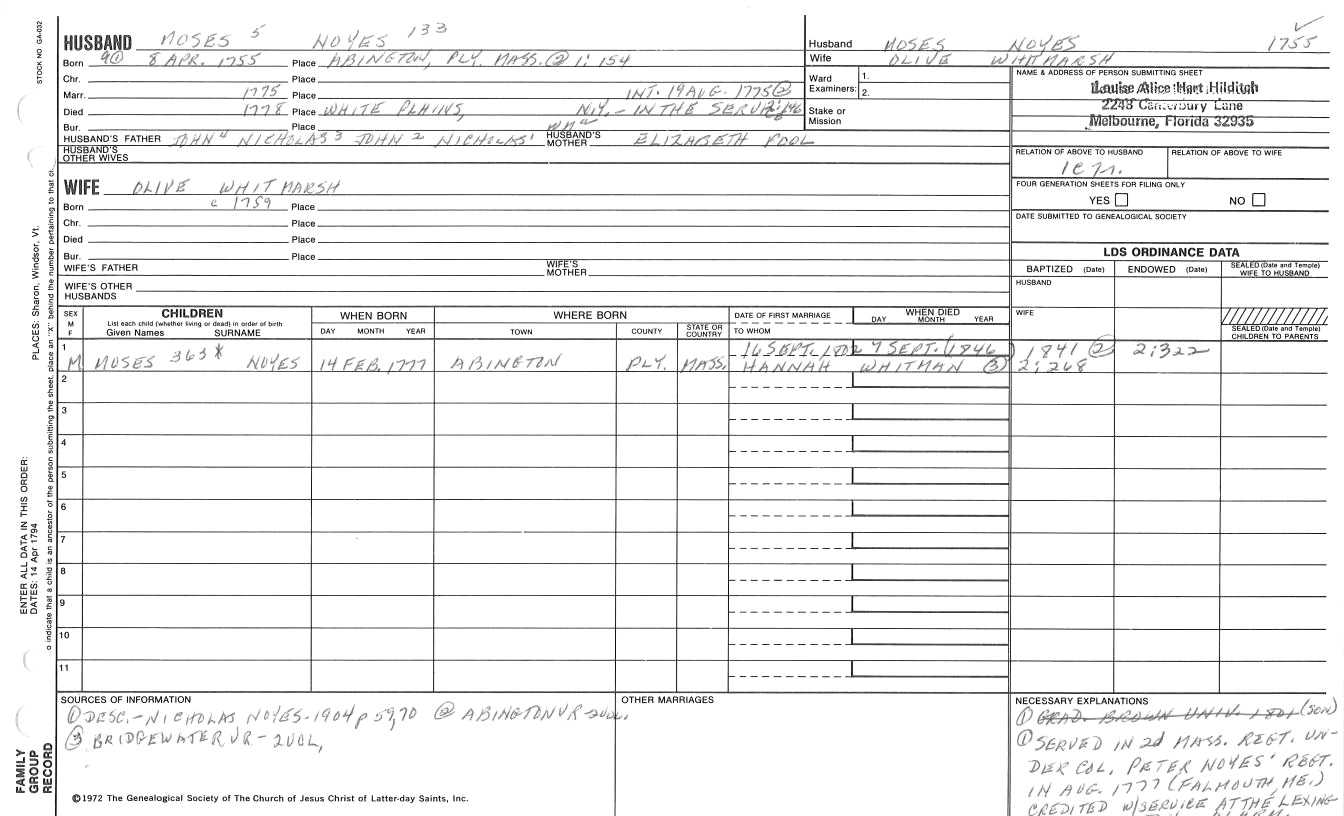 HUSBAND MOSES 5 NOYES 133
Born 8 APR. 1755 Place ABINGTON, PLY. MASS. (2) 1: 154
Chr. Place
Marr. 1775 Place INT. 19 AUG. 1775 (2)
Died 1778 Place WHITE PLAINS, N.Y. - IN THE SERV.
Bur. Place
HUSBAND'S FATHER JOHN 4 NICHOLAS 3 JOHN 2 NICHOLAS 1 HUSBAND'S MOTHER ELIZABETH POOL
HUSBAND'S OTHER WIVES
WIFE OLIVE WHITMARSH
Born c 1759 Place
Chr. Place
Died Place
Bur. Place
WIFE'S FATHER WIFE'S MOTHER
WIFE'S OTHER HUSBANDS
Husband MOSES NOYES 1755
Wife OLIVE WHITMARSH
Ward Examiners: 1. 2.
Stake or Mission
NAME & ADDRESS OF PERSON SUBMITTING SHEET
Louise Alice Hart Hilditch
2243 Canterbury Lane
Melbourne, Florida 32935
RELATION OF ABOVE TO HUSBAND RELATION OF ABOVE TO WIFE
FOUR GENERATION SHEETS FOR FILING ONLY
YES NO
DATE SUBMITTED TO GENEALOGICAL SOCIETY
LDS ORDINANCE DATA
BAPTIZED (Date) ENDOWED (Date) SEALED (Date and Temple) WIFE TO HUSBAND
HUSBAND
WIFE
SEALED (Date and Temple) CHILDREN TO PARENTS
SEX M F
CHILDREN
List each child (whether living or dead) in order of birth
Given Names SURNAME
WHEN BORN
DAY MONTH YEAR
WHERE BORN
TOWN COUNTY STATE OR COUNTRY
DATE OF FIRST MARRIAGE
TO WHOM
WHEN DIED
DAY MONTH YEAR
1 M MOSES 363 X NOYES 14 FEB. 1777 ABINGTON PLY. MASS. 16 SEPT. 1802 7 SEPT. 1846 1841 (2) 2:322
HANNAH WHITMAN (3) 2:268
2
3
4
5
6
7
8
9
10
11
SOURCES OF INFORMATION
(1) DESC. - NICHOLAS NOYES - 1904 p 59,70 (2) ABINGTON VR - 2 VOL.
(3) BRIDGEWATER VR - 2 VOL,
OTHER MARRIAGES
NECESSARY EXPLANATIONS
(1) GRAD. BROWN UNIV. 1801 (SON)
(1) SERVED IN 2d MASS. REGT. UN-
DER COL. PETER NOYES' REGT.
IN AUG. 1777 (FALMOUTH, ME.)
CREDITED W/SERVICE AT THE LEXING
©1972 The Genealogical Society of The Church of Jesus Christ of Latter-day Saints, Inc.
STOCK NO GA-032
PLACES: Sharon, Windsor, Vt.
ENTER ALL DATA IN THIS ORDER:
DATES: 14 Apr 1794
o indicate that a child is an ancestor of the person submitting the sheet, place an "X" behind the number pertaining to that c
FAMILY GROUP RECORD